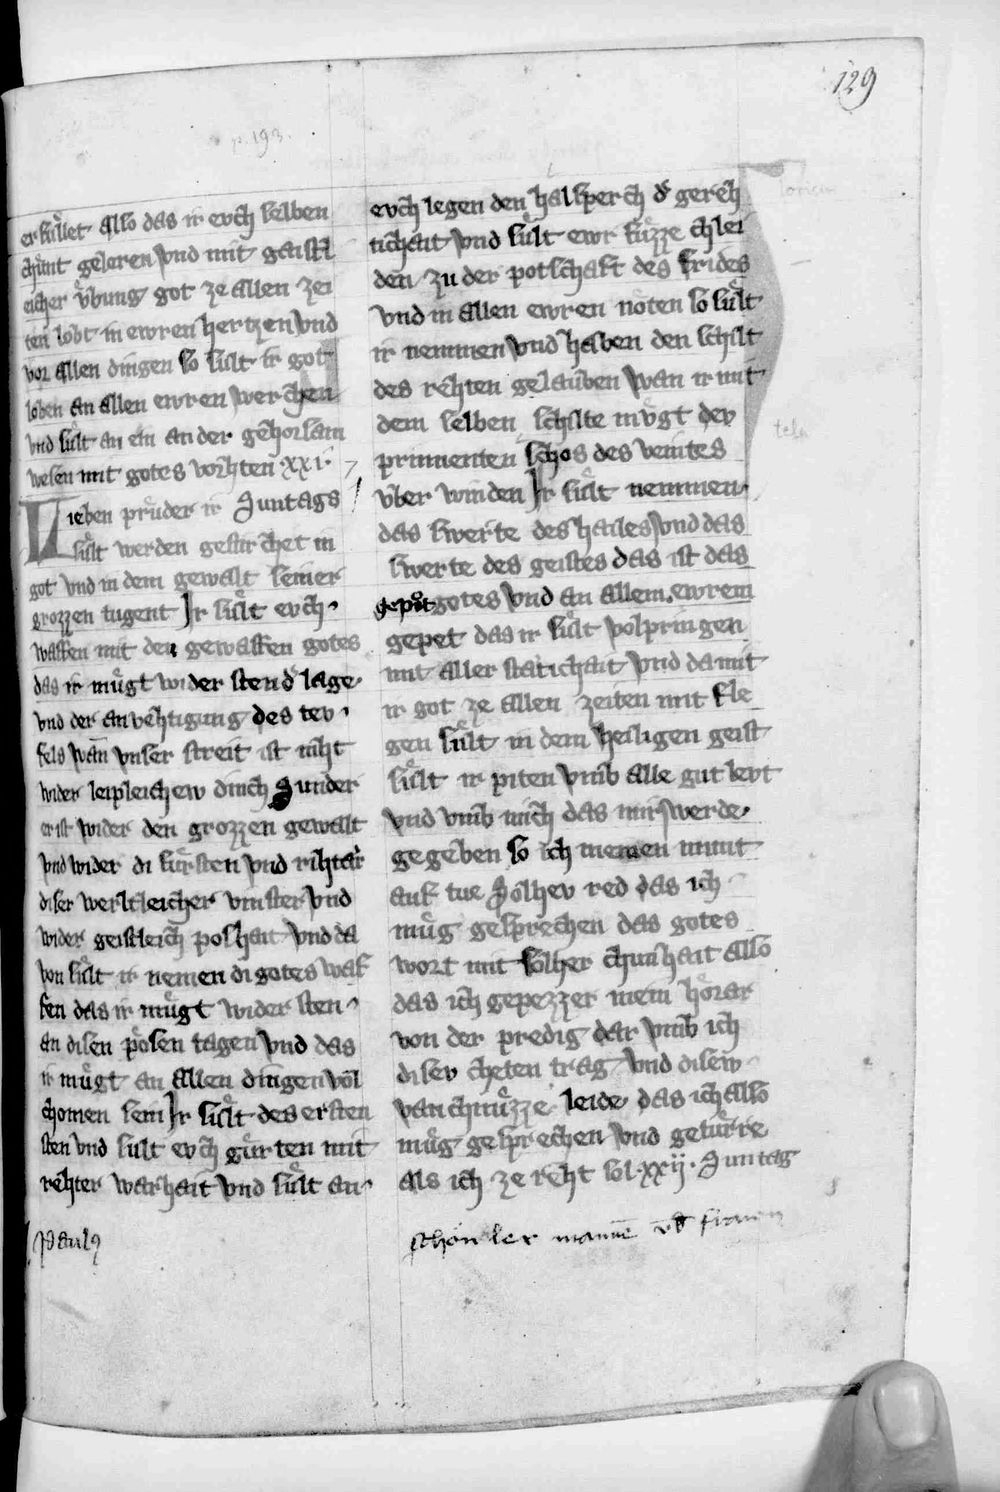 129
p. 193.
erfuͤllet Also das ir evch selben
chuͤnt geleren vnd mit gaistl
eicher vͤbung got ze allen zei
ten lobt in ewren hertzen vnd
vor allen dingen so sult ir got
loben an allen ewren werchen
vnd suͤlt an ein an der gehorsam
wesen mit gotes vorhten ·xxi·
Lieben pruͤder ir Suntags
suͤlt werden gesterchet in
got vnd in dem gewalt seiner
grozzen tugent Ir suͤlt evch
waffen mit den gewaffen gotes
das ir muͤgt wider sten d̓ lage
vnd der anvehtigung des tev
fels wan̄ vnser streit ist niht
wider leipleichew dinch Sunder
er ist wider den grozzen gewalt
vnd wider di fuͤrsten vnd rihtaͤr
diser werltleicher vinster vnd
wider geistleich poshait vnd da
von suͤlt ir nemen di gotes waf
fen das ir muͤgt wider sten
an disen poͤsen tagen vnd das
ir muͤgt an allen dingen vol
chomen sein Ir suͤlt des ersten
sten vnd sult evch guͤrten mit
rehter warhait vnd suͤlt an
Paulꝯ
evch legen den halsperch d̓ gereh
tichait vnd suͤlt ewr fuͤzze chlei
den zu der potschaft des frides
vnd in allen ewren noͤten so suͤlt
ir nemmen vnd haben den schilt
des rehten gelauben wan ir mit
dem selben schilte muͤgt dev
prinnenten schos des veintes
vber winden Ir suͤlt nemmen
das swerte des hailes vnd das
swerte des geistes das ist das
gepot gotes vnd an allem ewrem
gepet das ir suͤlt volpringen
mit aller statichait vnd da mit
ir got ze allen zeiten mit fle
gen suͤlt in dem heiligen geist
suͤlt ir piten vmb alle gut levt
vnd vmb mich das mir werde
gegeben so ich meinen munt
auf tue Solhev red das ich
muͤg gesprechen das gotes
wort mit solher chunhait also
das ich gepezzer mein hoͤrar
von der predig dar vmb ich
disev cheten trag vnd disew
vanchnuͤzze leide das ich also
muͤg gesprechen vnd getuͤrre
als ich ze reht sol ·xxij· Suntag
schon ler